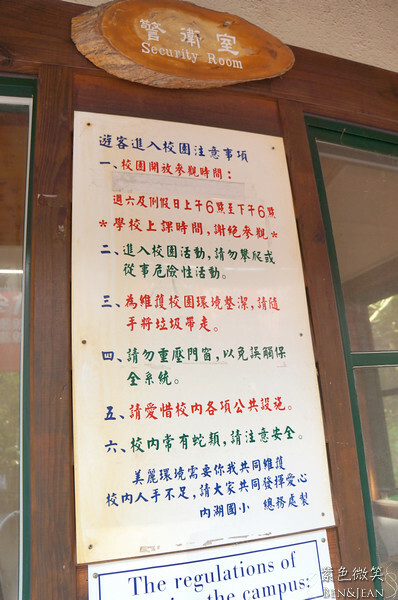 警衛室
Security Room
遊客進入校園注意事項
一、校園開放參觀時間：
週六及例假日上午6點至下午6點
*學校上課時間，謝絕參觀*
二、進入校園活動，請勿攀爬或
從事危險性活動。
三、為維護校園環境整潔，請隨
手將垃圾帶走。
四、請勿重壓門窗，以免誤觸保
全系統。
五、請愛惜校內各項公共設施。
六、校內常有蛇類，請注意安全。
美麗環境需要你我共同維護
校內人手不足，請大家共同發揮愛心
內湖國小 總務處製
The regulations of
the campus:
紫色微笑
BEN&JEAN